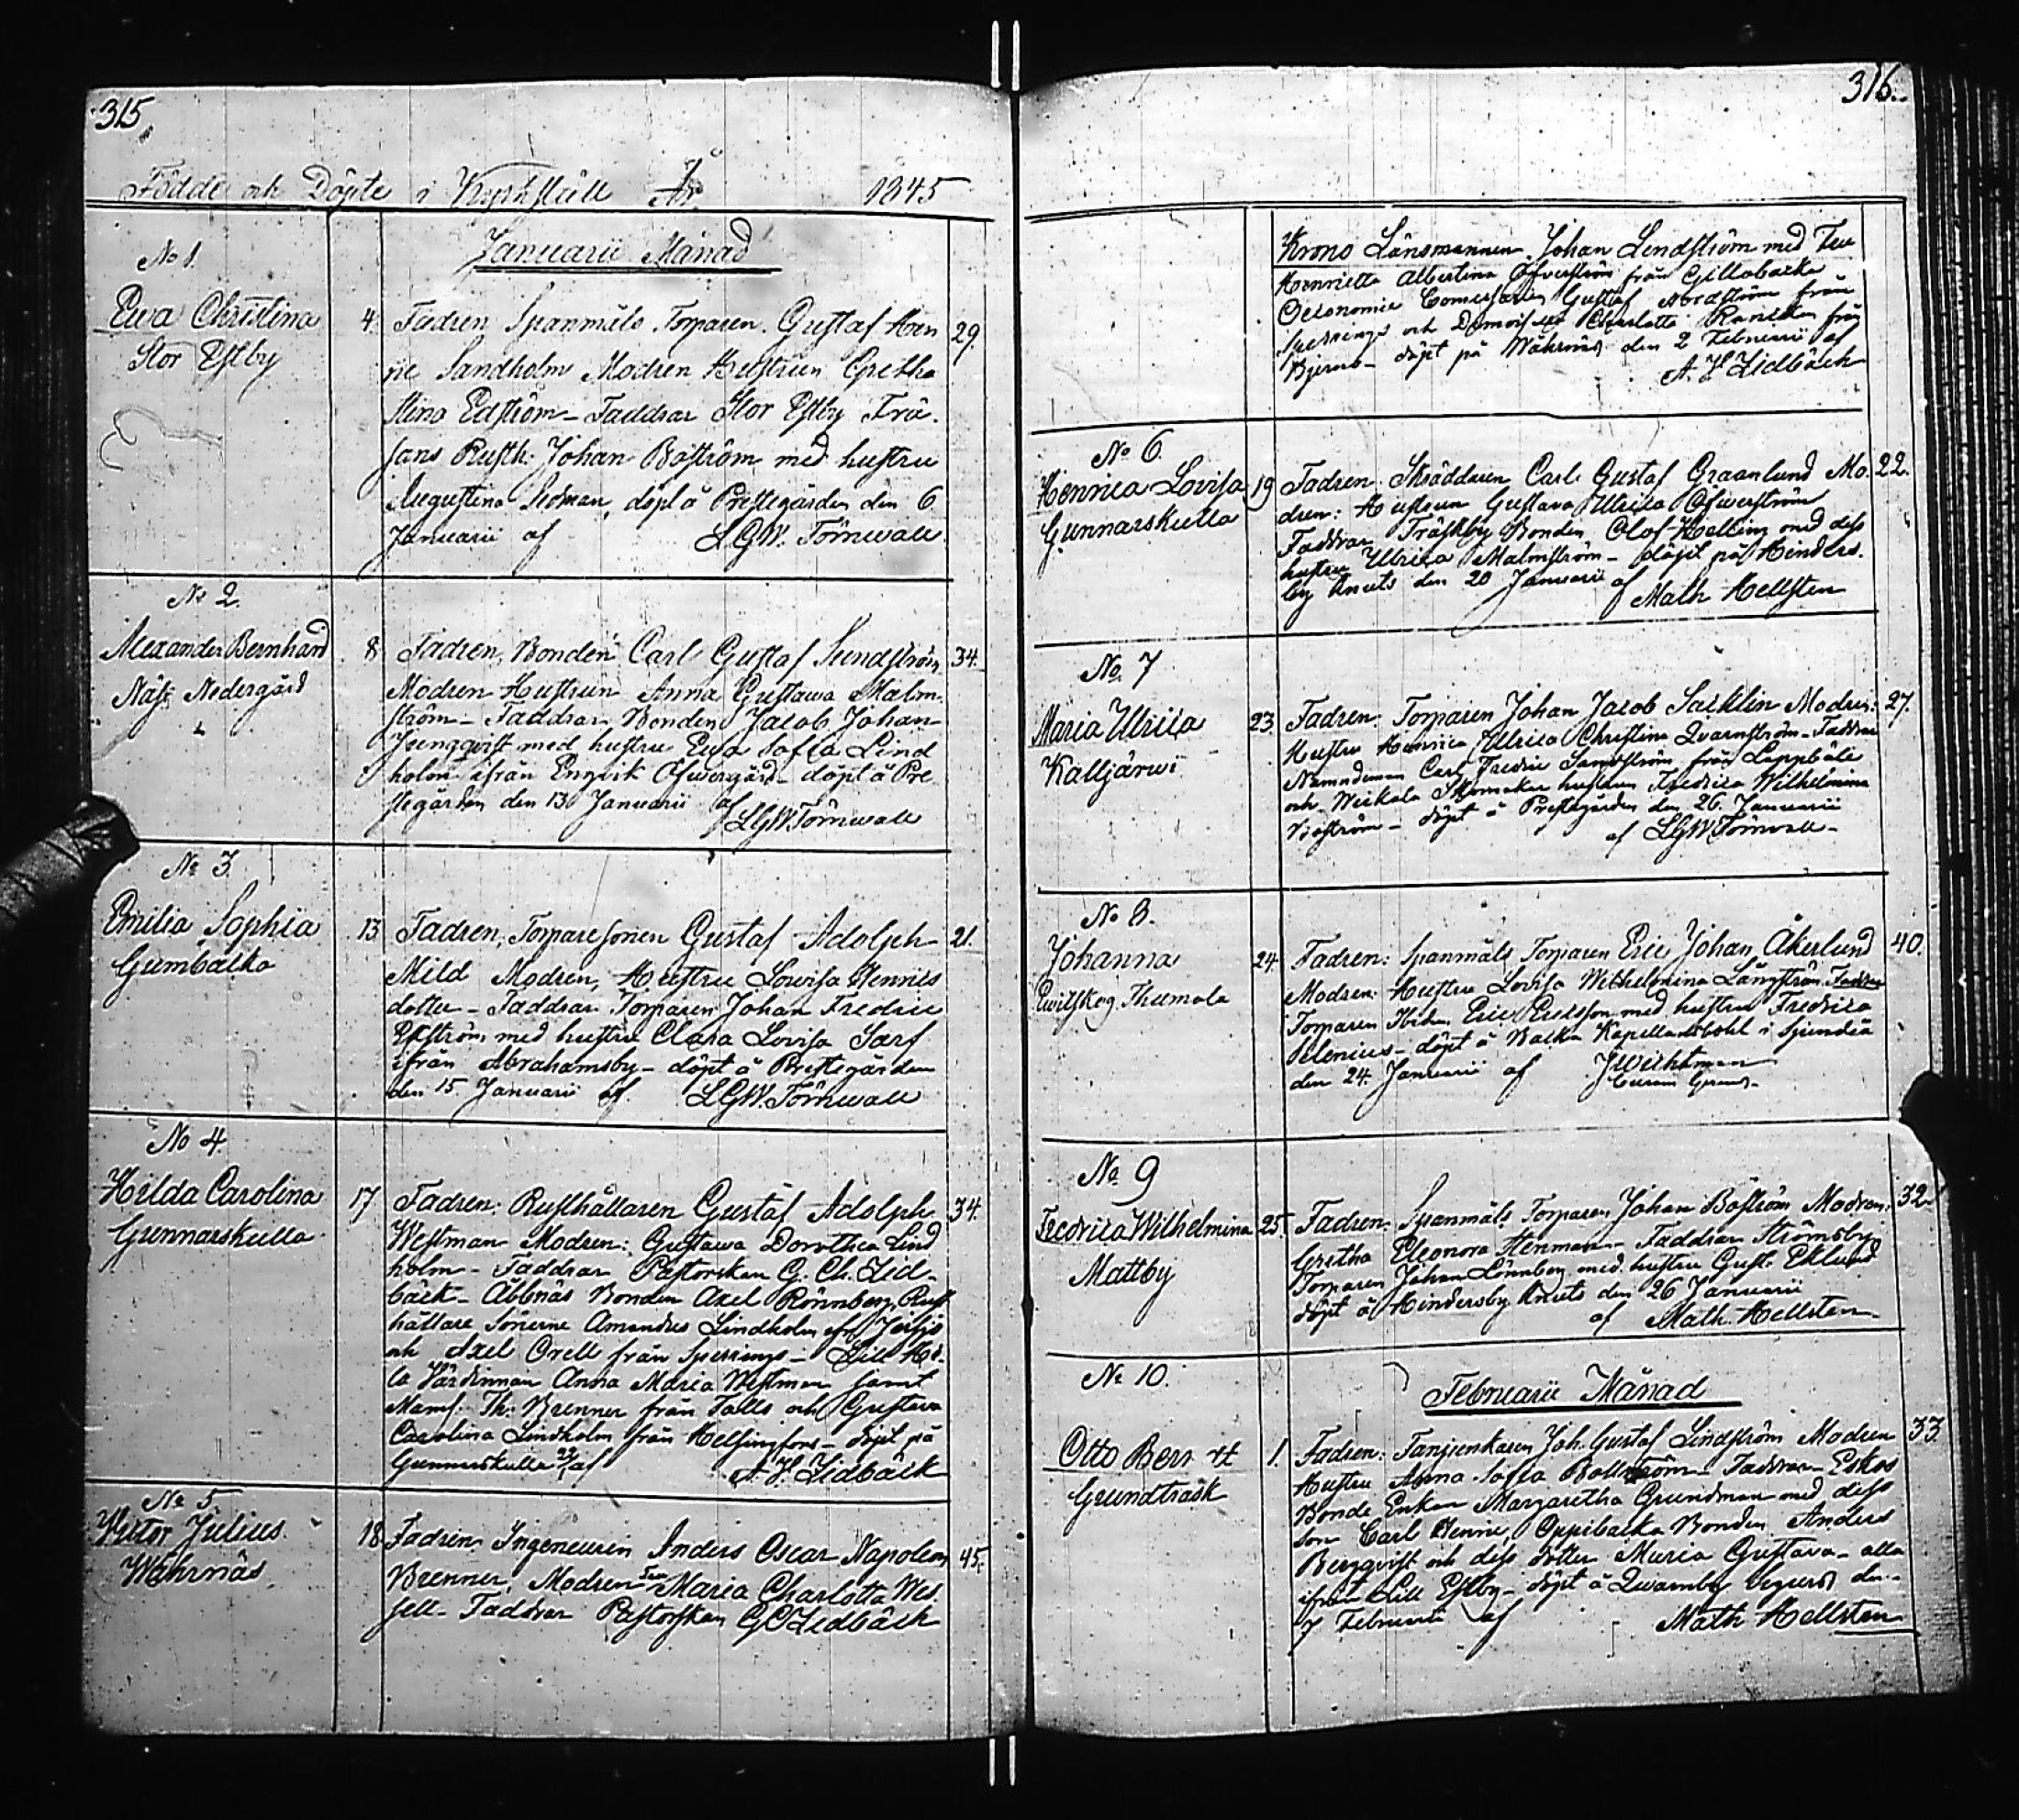 315
Födde och Döpte i Kyrkslätt År 1845
Januarii Månad
No 1.
Ewa Christina
Stor Estby
4. Fadren Spanmåls Torparen Gustaf Hen 29.
ric Sandholm Modren Hustrun Gretha
Stina Edström - Faddrar Stor Estby Frä
sars Rusth. Johan Boström med hustru
Augustina Sedman, döpt å Prestegården den 6
Januarii af LGW. Törnwall
No 2.
Alexander Bernhard
Näse Nedergård
8 Fadren, Bonden Carl Gustaf Sundström 34.
Modren Hustrun Anna Gustawa Malm
ström - Faddrar Bonden Jacob Johan
Ljungqvist med hustru Ewa Sofia Lind
holm ifrån Engvik Öfwergård - döpt å Pre
stegården den 13 Januarii af
LGW. Törnwall
No 3.
Emilia Sophia
Gumbacka
13 Fadren, Torparesonen Gustaf Adolph 21.
Mild Modren, Hustru Lowisa Henrics
dotter - Faddrar Torparen Johan Fredric
Ekström med hustru Clara Lovisa Sarf
ifrån Abrahamsby - döpt å Prestegården
den 15 Januarii af LGW. Törnwall
No 4.
Hilda Carolina
Gunnarskulla
17 Fadren: Rusthållaren Gustaf Adolph 34.
Westman Modren: Gustawa Dorothea Lind
holm - Faddrar Pastorskan G. Ch. Lid-
bäck - Åbbnäs Bonden Axel Rönnberg, Rust
hållare Sönerne Amandus Lindholm
och Axel Orell från Sperrings - Lill
Wärdinnan Anna Maria Westman samt
Mams. Th. Brenner från Talls och Gustava
Carolina Lindholm från Helsingfors - döpt på
Gunnarskulla af A. H. Lidbäck
No 5.
Victor Julius
Wåhrnäs
18 Fadren Ingeneuren Anders Oscar Napoleon 45.
Brenner, Modren Fru Maria Charlotta Wes
sell - Faddrar Pastorskan GC Lidbäck
316.
Krono Länsmannen Johan Lindström med Fru
Henrietta Albertina Öfverström från Gillobacka
Oeconomie Comissarien Gustaf Nordström från
Sperrings och Demoiselle Charlotta från
Bjerns - döpt på Wåhrnäs den 2 Februarii af
A. H. Lidbäck
No 6.
Henrica Lovisa
Gunnarskulla
19 Fadren: Skräddaren Carl Gustaf Graanlund Mo- 22.
dren: Hustrun Gustava Ulrica Öfwerström
Faddrar Träskby Bonden Olof Helling med dess
hustru Ulrica Malmström - döpt på Hinders-
by Knuts den 20 Januarii af
Math Hellsten
No 7
Maria Ulrica
Kalljärwi
23. Fadren: Torparen Johan Jacob Säcklin Modren: 27.
Hustru Henrica Ulrica Christina Qvarnström - Faddrar
Nämndeman Carl Fredric Sandström från Lappböle
och Weikola Skomakar hustrun Fredrica Wilhelmina
döpt å Prestegården den 26 Januarii
af LGW. Törnwall -
No 8.
Johanna
Ewitskog Thumala
24. Fadren: Spanmåls Torparen Eric Johan Åkerlund 40.
Modren: Hustru Lovisa Wilhelmina Långström Faddrar
Torparen Eric Ericsson med hustru Fredrica
Selenius - döpt å Walka Kapellansbohl i Sjundeå
den 24. Januarii af J Wichtman
No 9
Fredrica Wilhelmina
Mattby
25. Fadren: Spanmåls Torparen Johan Boström Modren: 32.
Gretha Eleonora Stenman - Faddrar Strömsby
Torparen Johan Lönnberg med hustru Gust. Eklund
döpt å Hindersby Knuts den 26 Januarii
af Math. Hellsten
No 10.
Februarii Månad
Otto Bernt
Grundträsk
1. Fadren: Joh. Gustaf Lindström Modren 33.
Hustru Anna Sofia Bollström - Faddrar - Eskos
Bonde Enkan Margaretha Grundman med dess
son Carl Henric, Oppibacka Bonden Anders
Bergqvist och dess dotter Maria Gustava - alla
ifrån Lill Estby - döpt å Qwarnby den
7 Februarii af Math Hellsten